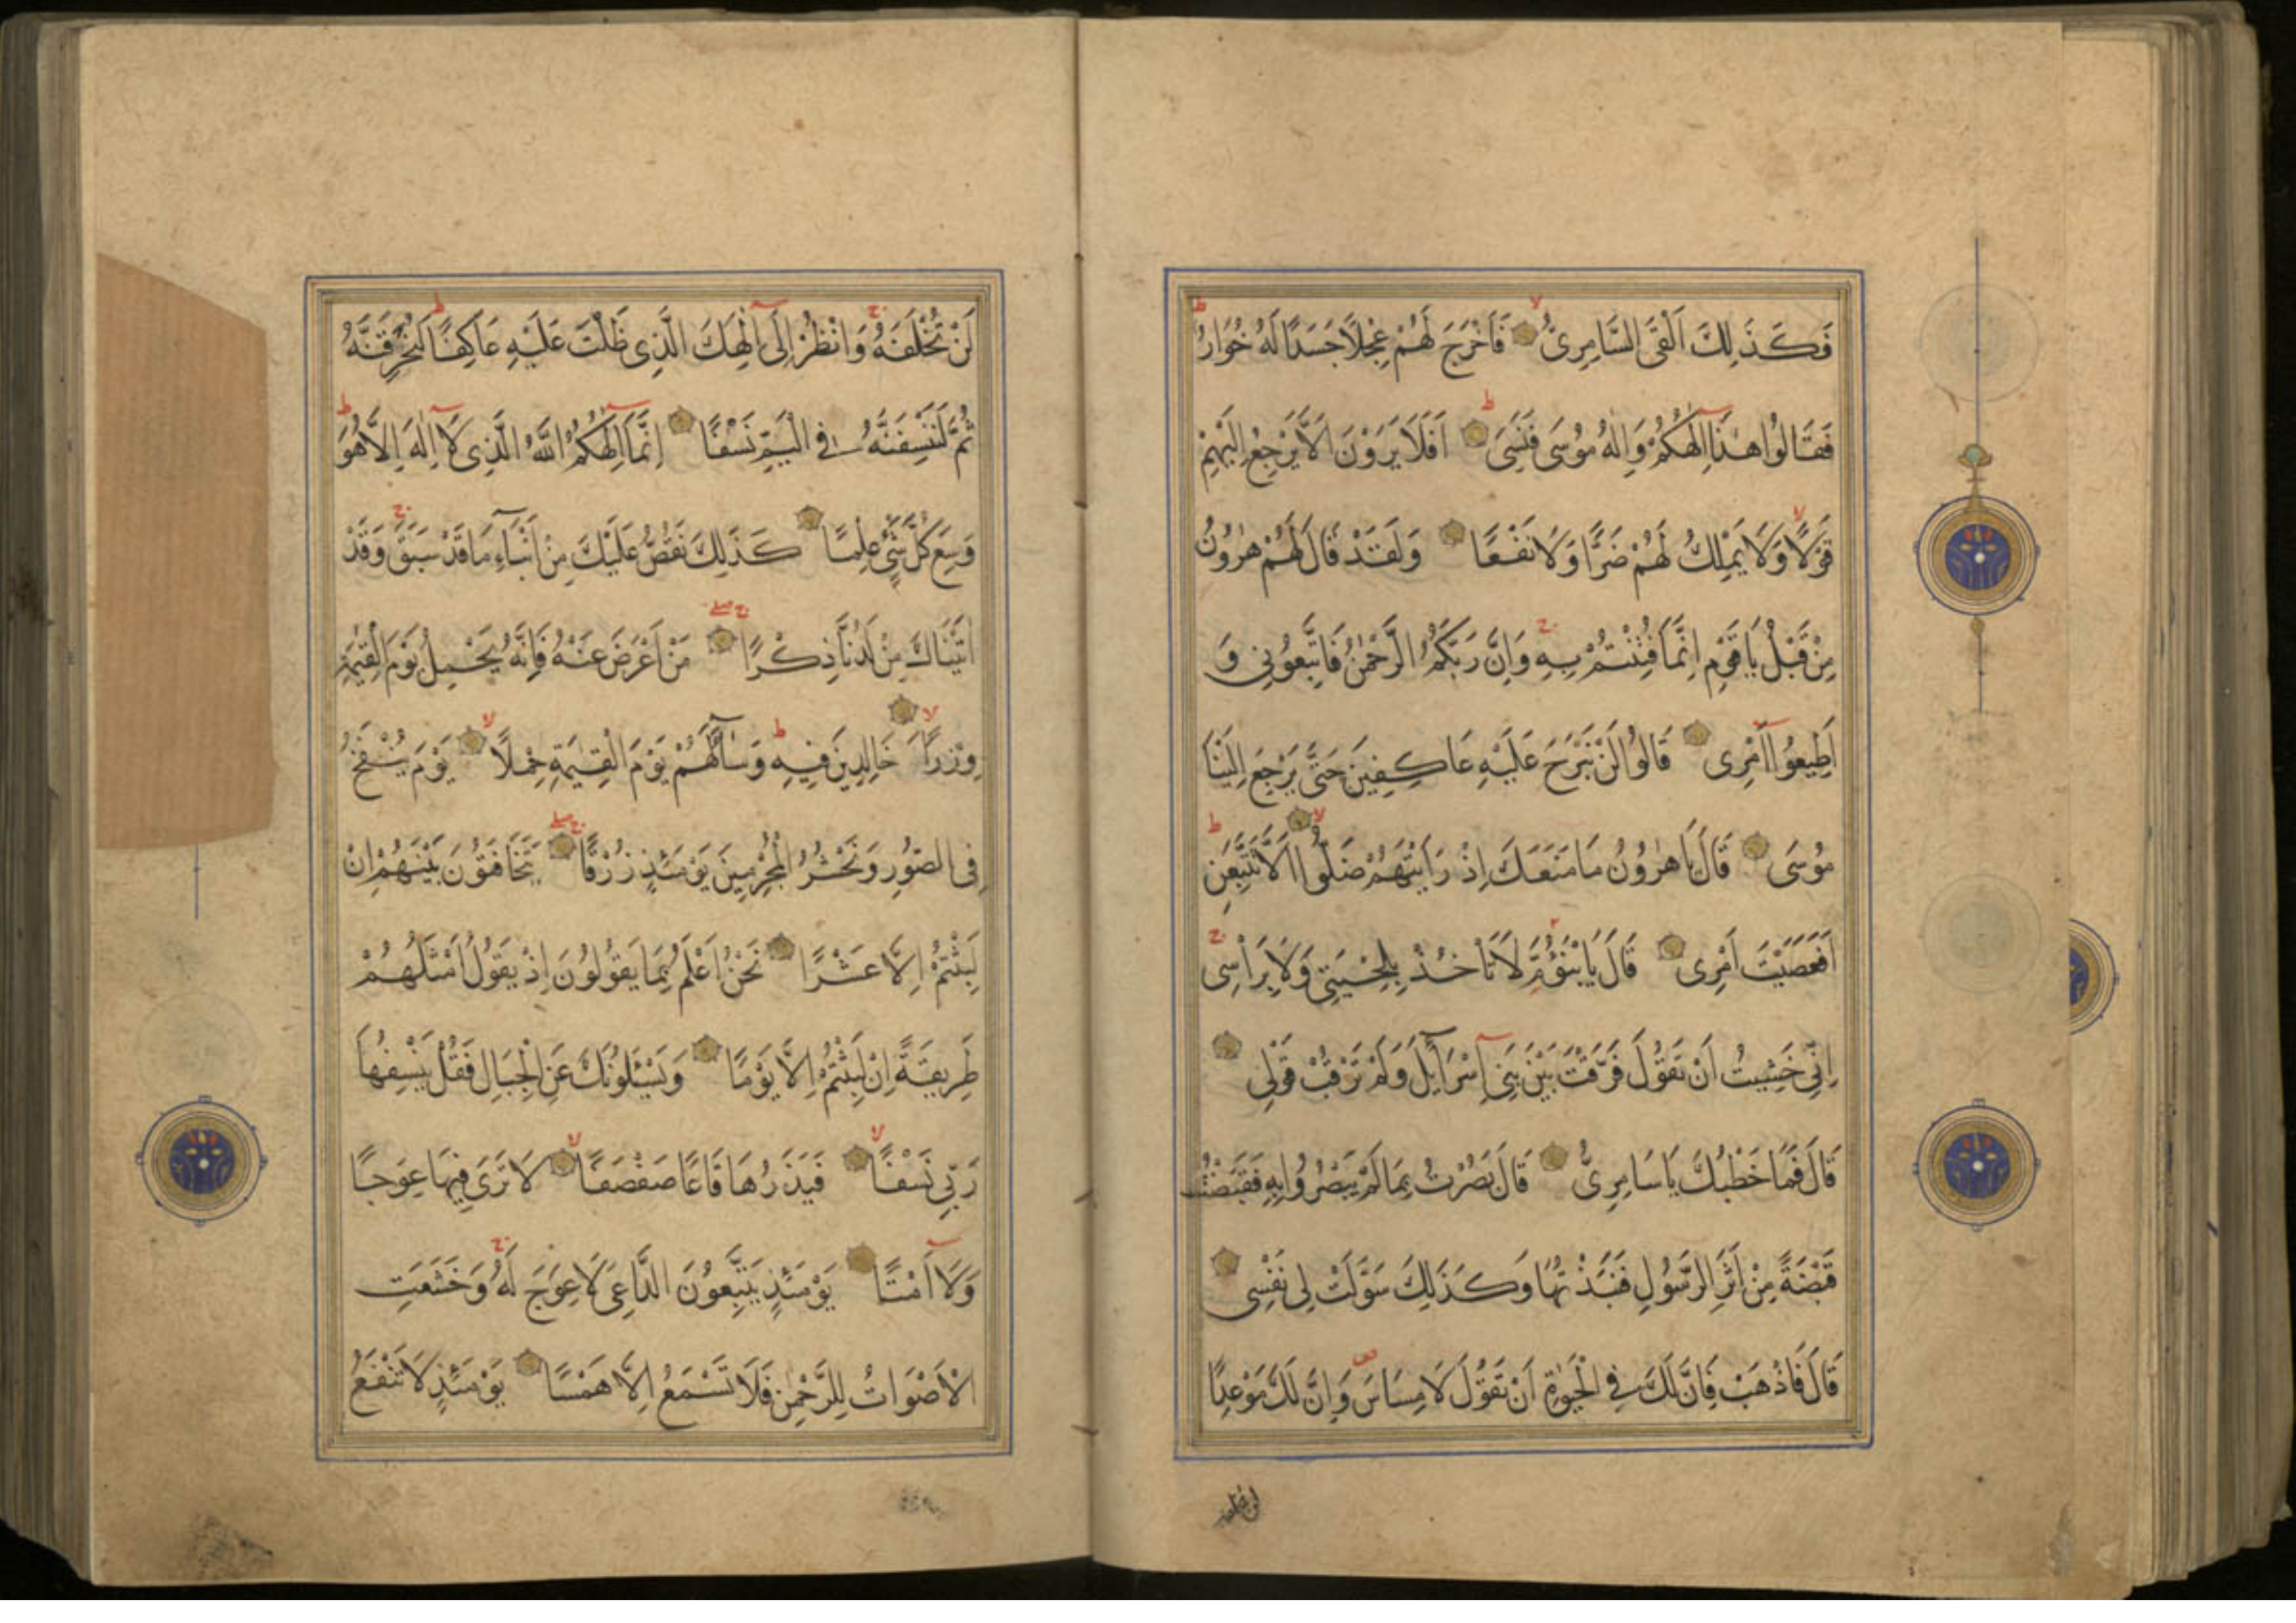 فَكَذَٰلِكَ اَلْقَى السَّامِرِىُّ فَاَخْرَجَ لَهُمْ عِجْلًا جَسَدًا لَهُ خُوَارٌ
فَقَالُوا هٰذَا اِلٰهُكُمْ وَاِلٰهُ مُوسَى فَنَسِىَ اَفَلَا يَرَوْنَ اَلَّا يَرْجِعُ اِلَيْهِمْ
قَوْلًا وَلَا يَمْلِكُ لَهُمْ ضَرًّا وَلَا نَفْعًا وَلَقَدْ قَالَ لَهُمْ هٰرُونُ
مِنْ قَبْلُ يَا قَوْمِ اِنَّمَا فُتِنْتُمْ بِهِ وَاِنَّ رَبَّكُمُ الرَّحْمٰنُ فَاتَّبِعُونِى وَ
اَطِيعُوا اَمْرِى قَالُوا لَنْ نَبْرَحَ عَلَيْهِ عَاكِفِينَ حَتَّى يَرْجِعَ اِلَيْنَا
مُوسَى قَالَ يَا هٰرُونُ مَا مَنَعَكَ اِذْ رَاَيْتَهُمْ ضَلُّوا اَلَّا تَتَّبِعَنِ
اَفَعَصَيْتَ اَمْرِى قَالَ يَا بْنَؤُمَّ لَا تَاْخُذْ بِلِحْيَتِى وَلَا بِرَاْسِى
اِنِّى خَشِيتُ اَنْ تَقُولَ فَرَّقْتَ بَيْنَ بَنِى اِسْرَآئِلَ وَلَمْ تَرْقُبْ قَوْلِى
قَالَ فَمَا خَطْبُكَ يَا سَامِرِىُّ قَالَ بَصُرْتُ بِمَا لَمْ يَبْصُرُوا بِهِ فَقَبَضْتُ
قَبْضَةً مِنْ اَثَرِ الرَّسُولِ فَنَبَذْتُهَا وَكَذٰلِكَ سَوَّلَتْ لِى نَفْسِى
قَالَ فَاذْهَبْ فَاِنَّ لَكَ فِى الْحَيٰوةِ اَنْ تَقُولَ لَا مِسَاسَ وَاِنَّ لَكَ مَوْعِدًا
لن تخلفه
لَنْ تُخْلَفَهُ وَانْظُرْ اِلَى اِلٰهِكَ الَّذِى ظَلْتَ عَلَيْهِ عَاكِفًا لَنُحَرِّقَنَّهُ
ثُمَّ لَنَنْسِفَنَّهُ فِى الْيَمِّ نَسْفًا اِنَّمَا اِلٰهُكُمُ اللّٰهُ الَّذِى لَا اِلٰهَ اِلَّا هُوَ
وَسِعَ كُلَّ شَىْءٍ عِلْمًا كَذٰلِكَ نَقُصُّ عَلَيْكَ مِنْ اَنْبَآءِ مَا قَدْ سَبَقَ وَقَدْ
اٰتَيْنَاكَ مِنْ لَدُنَّا ذِكْرًا مَنْ اَعْرَضَ عَنْهُ فَاِنَّهُ يَحْمِلُ يَوْمَ الْقِيٰمَةِ
وِزْرًا خَالِدِينَ فِيهِ وَسَآءَ لَهُمْ يَوْمَ الْقِيٰمَةِ حِمْلًا يَوْمَ يُنْفَخُ
فِى الصُّورِ وَنَحْشُرُ الْمُجْرِمِينَ يَوْمَئِذٍ زُرْقًا يَتَخَافَتُونَ بَيْنَهُمْ اِنْ
لَبِثْتُمْ اِلَّا عَشْرًا نَحْنُ اَعْلَمُ بِمَا يَقُولُونَ اِذْ يَقُولُ اَمْثَلُهُمْ
طَرِيقَةً اِنْ لَبِثْتُمْ اِلَّا يَوْمًا وَيَسْئَلُونَكَ عَنِ الْجِبَالِ فَقُلْ يَنْسِفُهَا
رَبِّى نَسْفًا فَيَذَرُهَا قَاعًا صَفْصَفًا لَا تَرَى فِيهَا عِوَجًا
وَلَا اَمْتًا يَوْمَئِذٍ يَتَّبِعُونَ الدَّاعِىَ لَا عِوَجَ لَهُ وَخَشَعَتِ
الْاَصْوَاتُ لِلرَّحْمٰنِ فَلَا تَسْمَعُ اِلَّا هَمْسًا يَوْمَئِذٍ لَا تَنْفَعُ